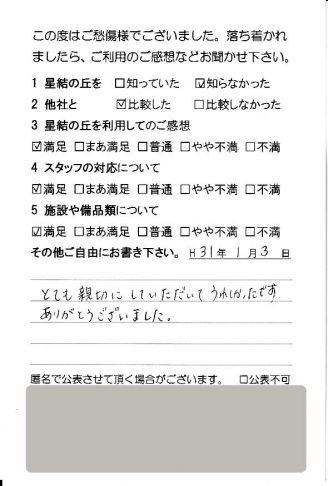 この度はご愁傷様でございました。落ち着かれ
ましたら、ご利用のご感想などお聞かせ下さい。
1 星結の丘を □知っていた ☑知らなかった
2 他社と ☑比較した □比較しなかった
3 星結の丘を利用してのご感想
☑満足 □まあ満足 □普通 □やや不満 □不満
4 スタッフの対応について
☑満足 □まあ満足 □普通 □やや不満 □不満
5 施設や備品類について
☑満足 □まあ満足 □普通 □やや不満 □不満
その他ご自由にお書き下さい。 H31年 1月3日
とても親切にしていただいてうれしかったです
ありがとうございました。
匿名で公表させて頂く場合がございます。 □公表不可